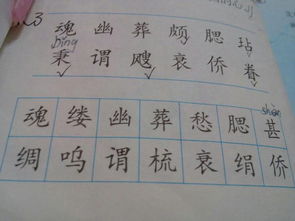 魂 幽 葬 颇 腮 玷
bǐng
秉 谓 飕 衰 侨 眷
shèn
魂 缕 幽 葬 愁 腮 甚
绸 呜 谓 梳 衰 绢 侨